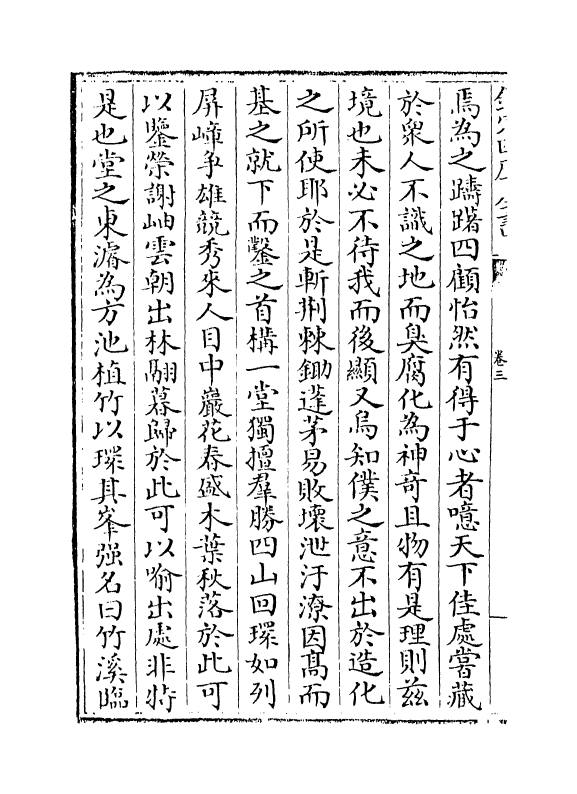 卷三
焉為之躊躇四顧怡然有得于心者噫天下佳處嘗藏
於衆人不識之地而臭腐化為神竒且物有是理則兹
境也未必不待我而後顯又烏知僕之意不出於造化
之所使耶於是斬荆棘鋤蓬茅易敗壞泄汙潦因髙而
基之就下而鑿之首構一堂獨擅羣勝四山回環如列
屏嶂争雄競秀來人目中巖花春盛木葉秋落於此可
以鑒榮謝岫雲朝出林翮暮歸於此可以喻出處非特
是也堂之東濬為方池植竹以環其峯强名曰竹溪臨